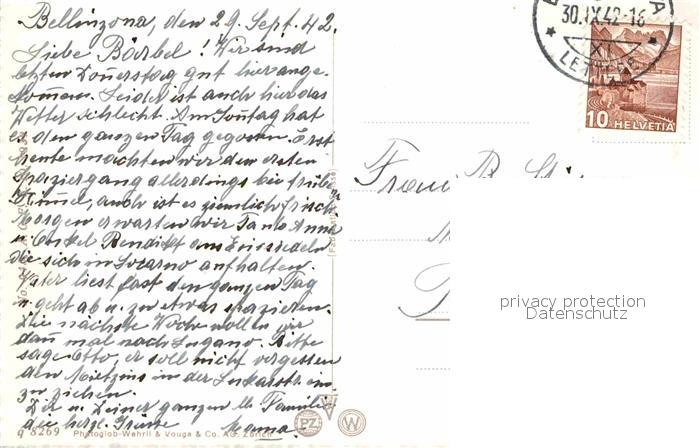 Bellinzona, den 29. Sept. 42.
Liebe Bärbel! Wir sind
letzten Donerstag gut hier ange-
kommen. Leider ist auch hier das
Wetter schlecht. Am Sontag hat
es den ganzen Tag gegossen. Erst
heute machten wir den ersten
Spaziergang allerdings bei trübem
Himmel, auch ist es ziemlich frisch.
Morgen erwarten wir Tante Anna
u. Onkel Bendikt aus Einsiedeln
die sich in Locarno aufhalten.
Vater liest fast den ganzen Tag
u. geht ab u. zu etwas spazieren.
Die nächste Woche wollen wir
dan mal nach Lugano. Bitte
sage Otto, er soll nicht vergessen
den Mietzins in der einzu
ziehen.
Dir u. Deiner ganzen lb. Familie
die herzl. Grüsse Mama.
q 8269 Photoglob-Wehrli & Vouga & Co. AG. Zürich
PZ W
30.IX.42-16
XI
LETTRES
10 HELVETIA
Frau B.
privacy protection
Datenschutz